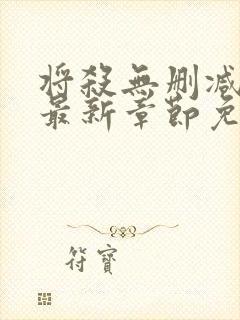 将殺無删减
最新章節免
符寶